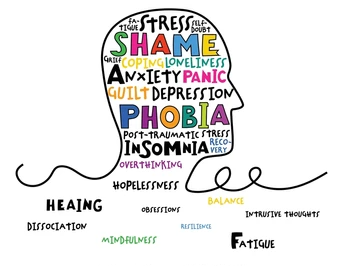 FA-
TIGUE
STRESS
SELF-
DOUBT
SHAME
GRIEF COPING LONELINESS
ANXIETY PANIC
GUILT DEPRESSION
PHOBIA
POST-TRAUMATIC STRESS
INSOMNIA RECO-
VERY
OVERTHINKING
HOPELESSNESS
BALANCE
HEAING
OBSESSIONS
INTRUSIVE THOUGHTS
DISSOCIATION
RESILIENCE
MINDFULNESS
FATIGUE